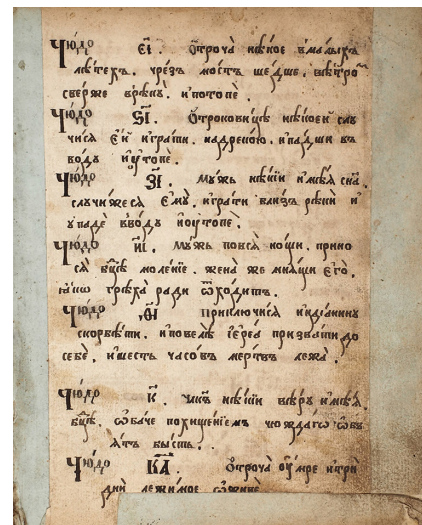 Чюдо еі. Ѻтроча нѣкое вмалыхъ
лѣтехъ. чрезъ мостъ шедше, вѣтро
сверже врѣку. ипотопе.
Чюдо ѕі. Ѻтроковице нѣкоей слу
чися ей играти. ипадши въ
воду иꙋтопе.
Чюдо зі. Мужъ нѣкіи имѣя сна.
случижеся ему. играти близъ рѣки и
упаде вводу иоутопе.
Чюдо иі. Мужъ повся нощи. прино
ся бцѣ моленіе. жена же мнящи его.
яко грѣха ради ѿходитъ.
Чюдо ѳі Приключися индіанину
скорбѣти. иповелѣ іерея призвати до
себѣ. ишесть часовъ мертвъ лежа.
Чюдо к. нѣкіи вѣру имѣя.
бцѣ. обаче похищеніемъ чюждаго объ
ятъ бысть.
Чюдо ка. Ѻтроча оумре итри
дни лежимое ѡживе